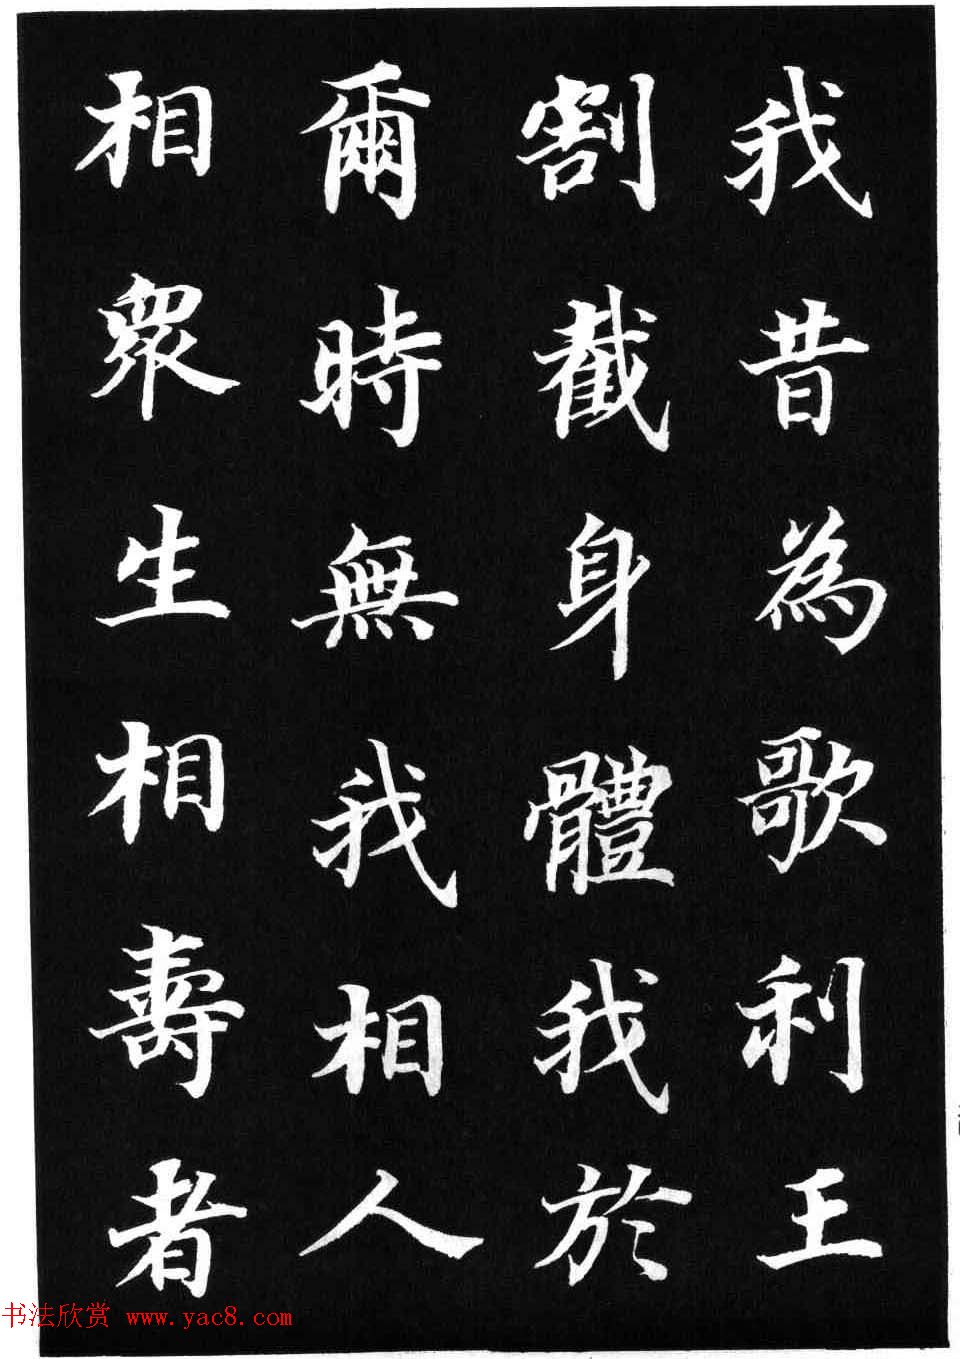 我昔為歌利王
割截身體我於
爾時無我相人
相眾生相壽者
书法欣赏 www.yac8.com